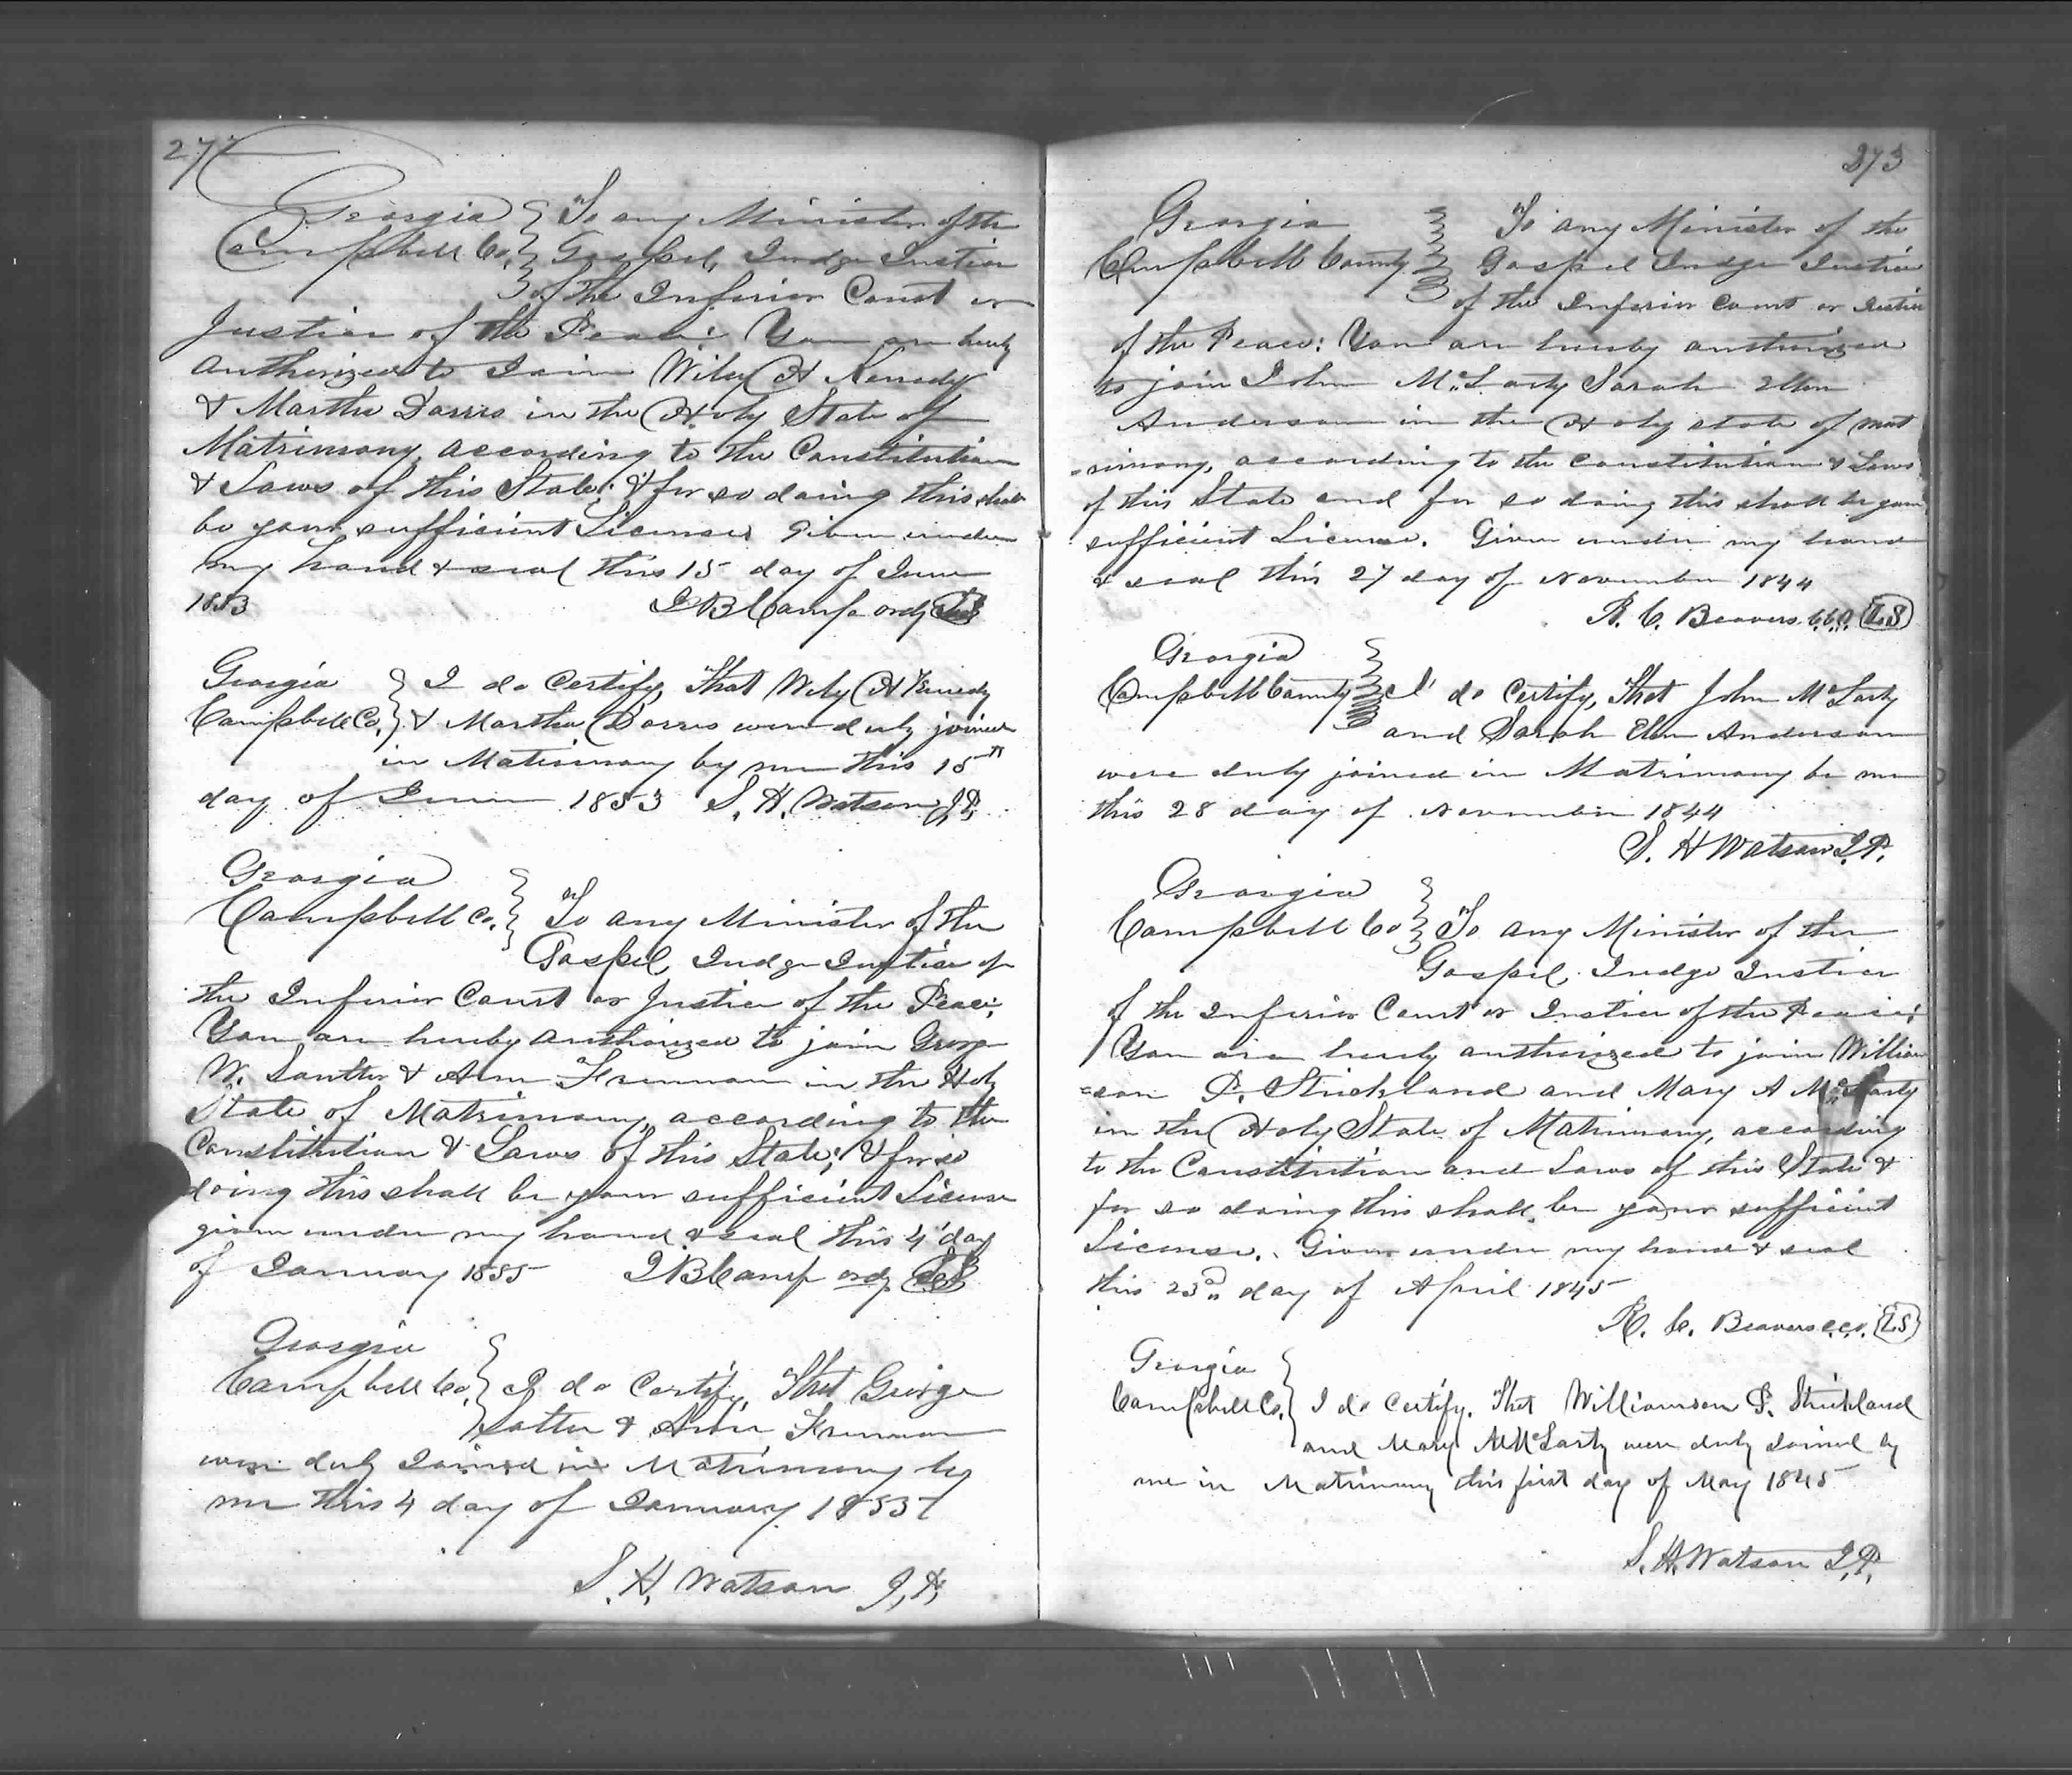 272
Georgia } To any Minister of the
Campbell Co. } Gospel, Judge Justice
of the Inferior Court or
Justice of the Peace: You are hereby
Authorized to Join Wiley H Kenedy
& Martha Dorris in the Holy State of
Matrimony, according to the Constitution
& Laws of this State: & for so doing this shall
be your sufficient License Given under
my hand & seal this 15 day of June
1853 J B Camp ordy
Georgia } I do Certify, That Wily H Kenedy
Campbell Co. } & Martha Dorris were duly joined
in Matrimony by me this 15th
day of June 1853 S. H. Watson J.P.
Georgia
Campbell Co. } To any Minister of the
Gospel, Judge Justice of
the Inferior Court or Justice of the Peace:
You are hereby authorized to join George
W. & Ann Freeman in the Holy
State of Matrimony, according to the
Constitution & Laws of this State; & for so
doing this shall be your sufficient License
given under my hand & seal this 4 day
of January 1855 J B Camp ordy
Georgia
Campbell Co. } I do Certify, That George
& Ann Freeman
were duly Joined in Matrimony by
me this 4 day of January 1855
S. H. Watson J.P.
273
Georgia } To any Minister of the
Campbell County } Gospel Judge Justice
of the Inferior Court or Justice
of the Peace: You are hereby authorized
to join John McLarty Sarah Ellen
Anderson in the Holy state of mat
=rimony, according to the constitution & Laws
of this State and for so doing this shall be your
sufficient License. Given under my hand
& seal this 27 day of November 1844
R. C. Beavers c.c.o. L.S
Georgia
Campbell County } I do Certify, That John McLarty
and Sarah Ellen Anderson
were duly joined in Matrimony be me
this 28 day of November 1844
S. H Watson J.P.
Georgia
Campbell Co } To any Minister of the
Gospel, Judge Justice
of the Inferior Court or Justice of the Peace:
You are hereby authorized to join William
=son P. Strickland and Mary A McLarty
in the Holy State of Matrimony, according
to the Constitution and Laws of this State &
for so doing this shall be your sufficient
License. Given under my hand & seal
this 23d day of April 1845
R. C. Beavers c.c.o. L S
Georgia
Campbell Co. } I do Certify, That Williamson P. Strickland
and Mary A McLarty were duly Joined by
me in Matrimony this first day of May 1845
S. H. Watson J.P.